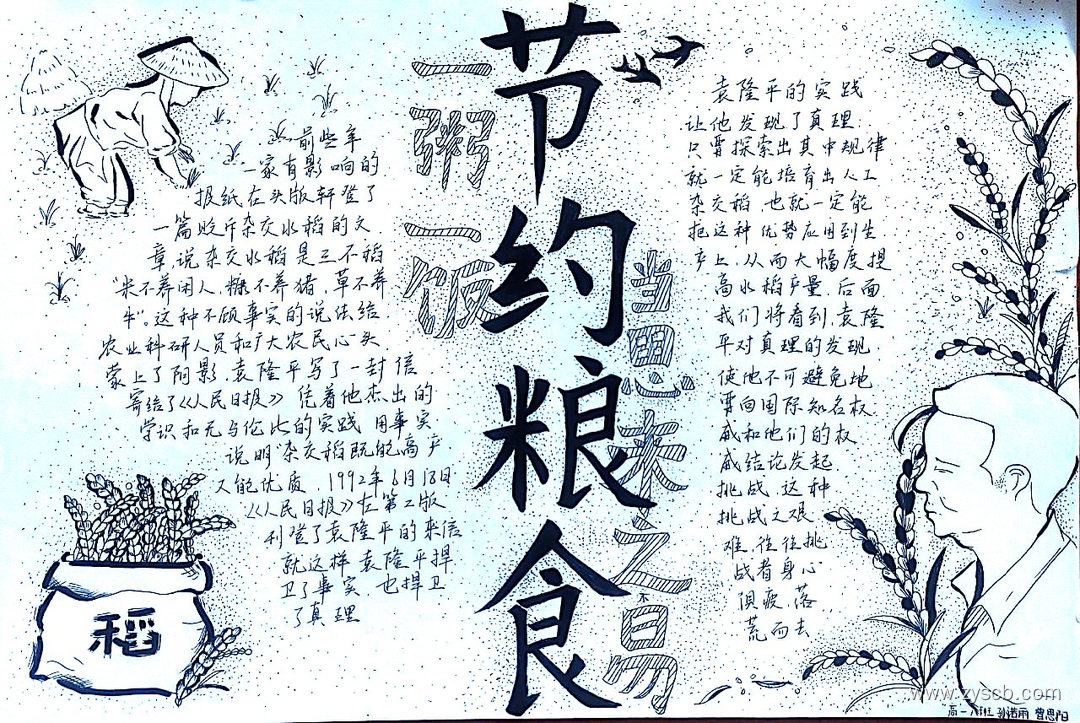 节约粮食
一粥一饭
当思来之不易
前些年
一家有影响的
报纸在头版轩登了
一篇贬斥杂交水稻的文
章说杂交水稻是三不稻
“米不养闲人,糠不养猪,草不养
牛”。这种不顾事实的说法给
农业科研人员和广大农民心头
蒙上了阴影,袁隆平写了一封信
寄给了《人民日报》 凭着他杰出的
学识和无与伦比的实践 用事实
说明 杂交稻既能高产
又能优质 1992年6月18日
《人民日报》在第二版
刊登了袁隆平的来信
就这样 袁隆平捍
卫了事实 也捍卫
了真理
袁隆平的实践
让他发现了真理
只要探索出其中规律
就一定能培育出人工
杂交稻,也就一定能
把这种优势应用到生
产上,从而大幅度提
高水稻产量,后面
我们将看到,袁隆
平对真理的发现
使他不可避免地
要向国际知名权
威和他们的权
威结论发起
挑战,这种
挑战之艰
难,往往挑
战者身心
俱疲,落
荒而去
稻
www.zyscb.com
高一八班 孙诺雨 曾思阳